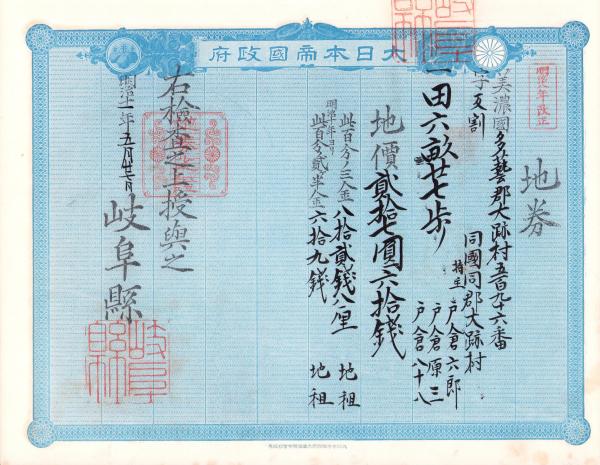 大日本帝國政府
明治八年改正
地券
美濃國多藝郡大跡村五百九十六番
字瓦割
同國同郡大跡村
持主 戸倉六郎
戸倉原三
戸倉八十八
一田六畝廿七歩
地價貳拾七圓六拾錢
此百分ノ三金八拾貳錢八厘 地租
明治十年ヨリ
此百分ノ貳半金六拾九錢 地租
右検査之上授與之
明治十一年五月廿七日
岐阜縣